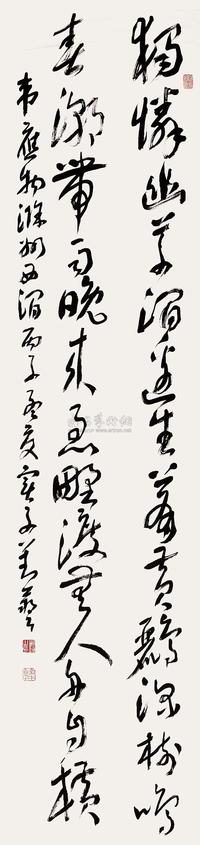 獨憐幽草澗邊生上有黃鸝深樹鳴
春潮帶雨晚來急野渡無人舟自橫
韋應物滁州西澗丙子孟夏